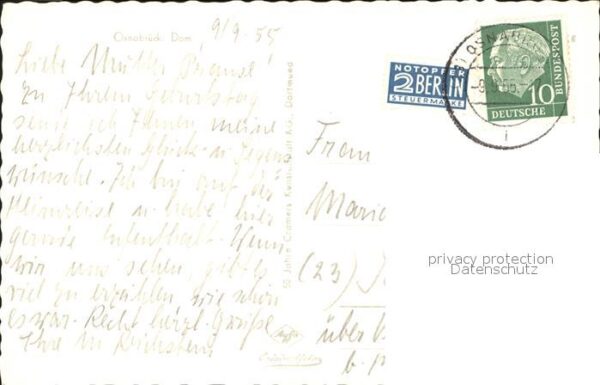 Osnabrück Dom
9/9.55
Liebe Mutter
Zu Ihrem Geburtstag
sende ich Ihnen meine
herzlichsten Glück- u. Segens
wünsche. Ich bin auf der
u. habe hier
gerade Aufenthalt. Wenn
wir uns sehen, gibt es
viel zu erzählen, wie schön
es war. Recht herzl. Grüße
Ihre
50 Jahre Cramers Kunstanstalt K.G., Dortmund
NOTOPFER
2 BERLIN
STEUERMARKE
OSNABRÜ
DEUTSCHE
10
BUNDESPOST
Frau
Marie
(23)
über
b.
privacy protection
Datenschutz